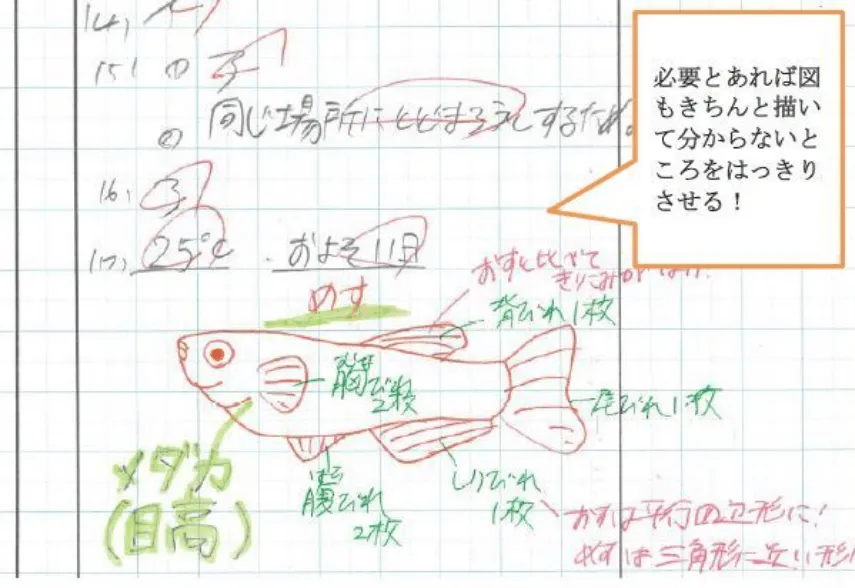 (4)
(5) ①
② 同じ場所にとどまろうとするため。
(6)
(7) 25℃ ・ およそ11日
必要とあれば図
もきちんと描い
て分からないと
ころをはっきり
させる！
おすと比べて
きりこみが
めす
背びれ1枚
胸びれ
2枚
尾びれ1枚
メダカ
(目高)
はら
腹びれ
2枚
しりびれ
1枚
おすは平行四辺形に！
めすは三角形に近い形